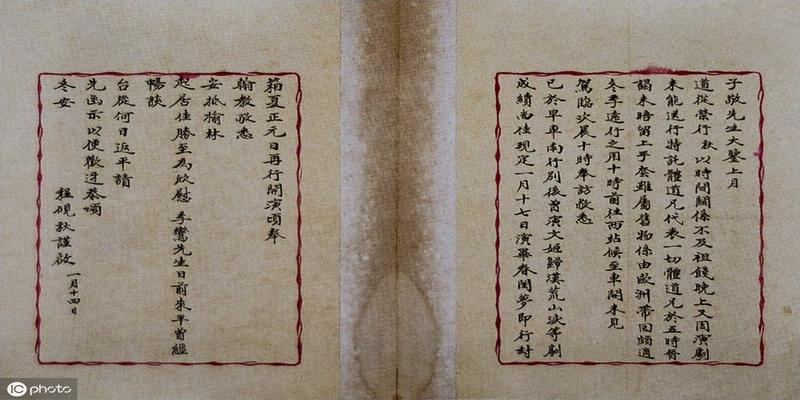 子敬先生大鑒上月
道從榮行秋以時間關係不及祖餞晚上又因演劇
未能送行特託體道兄代表一切體道兄於五時晉
謁未晤留上手套雖屬舊物係由歐洲帶回頗適
冬季遠行之用十時前往西站候至車開未見
駕臨次晨十時奉訪敬悉
已於早車南行別後曾演文姬歸漢荒山淚等劇
成績尚佳現定一月十七日演畢春閨夢即行封
箱夏正元日再行開演頃奉
翰教敬悉
安抵榆林
起居佳勝至為欣慰 季鸞先生日前來平曾經
暢談
台從何日返平請
先函示以便歡迓恭頌
冬安
程硯秋謹啟 一月十四日
IC photo